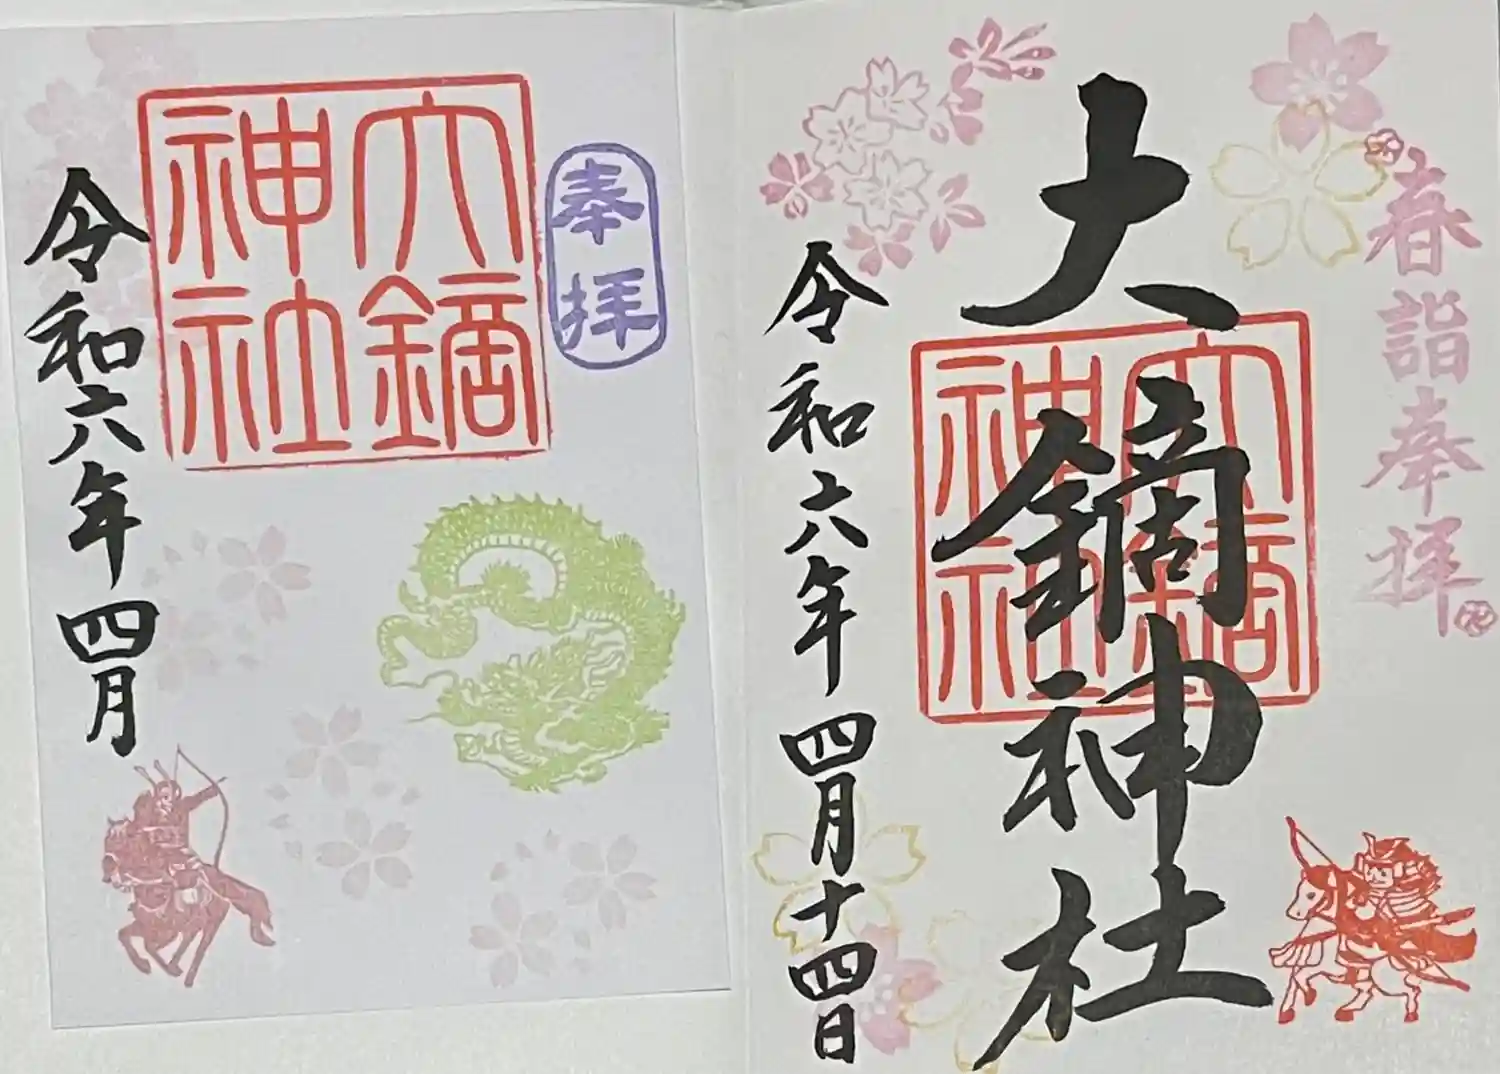 春詣奉拝
大鏑神社
大鏑神社
令和六年 四月十四日
奉拝
大鏑神社
令和六年 四月